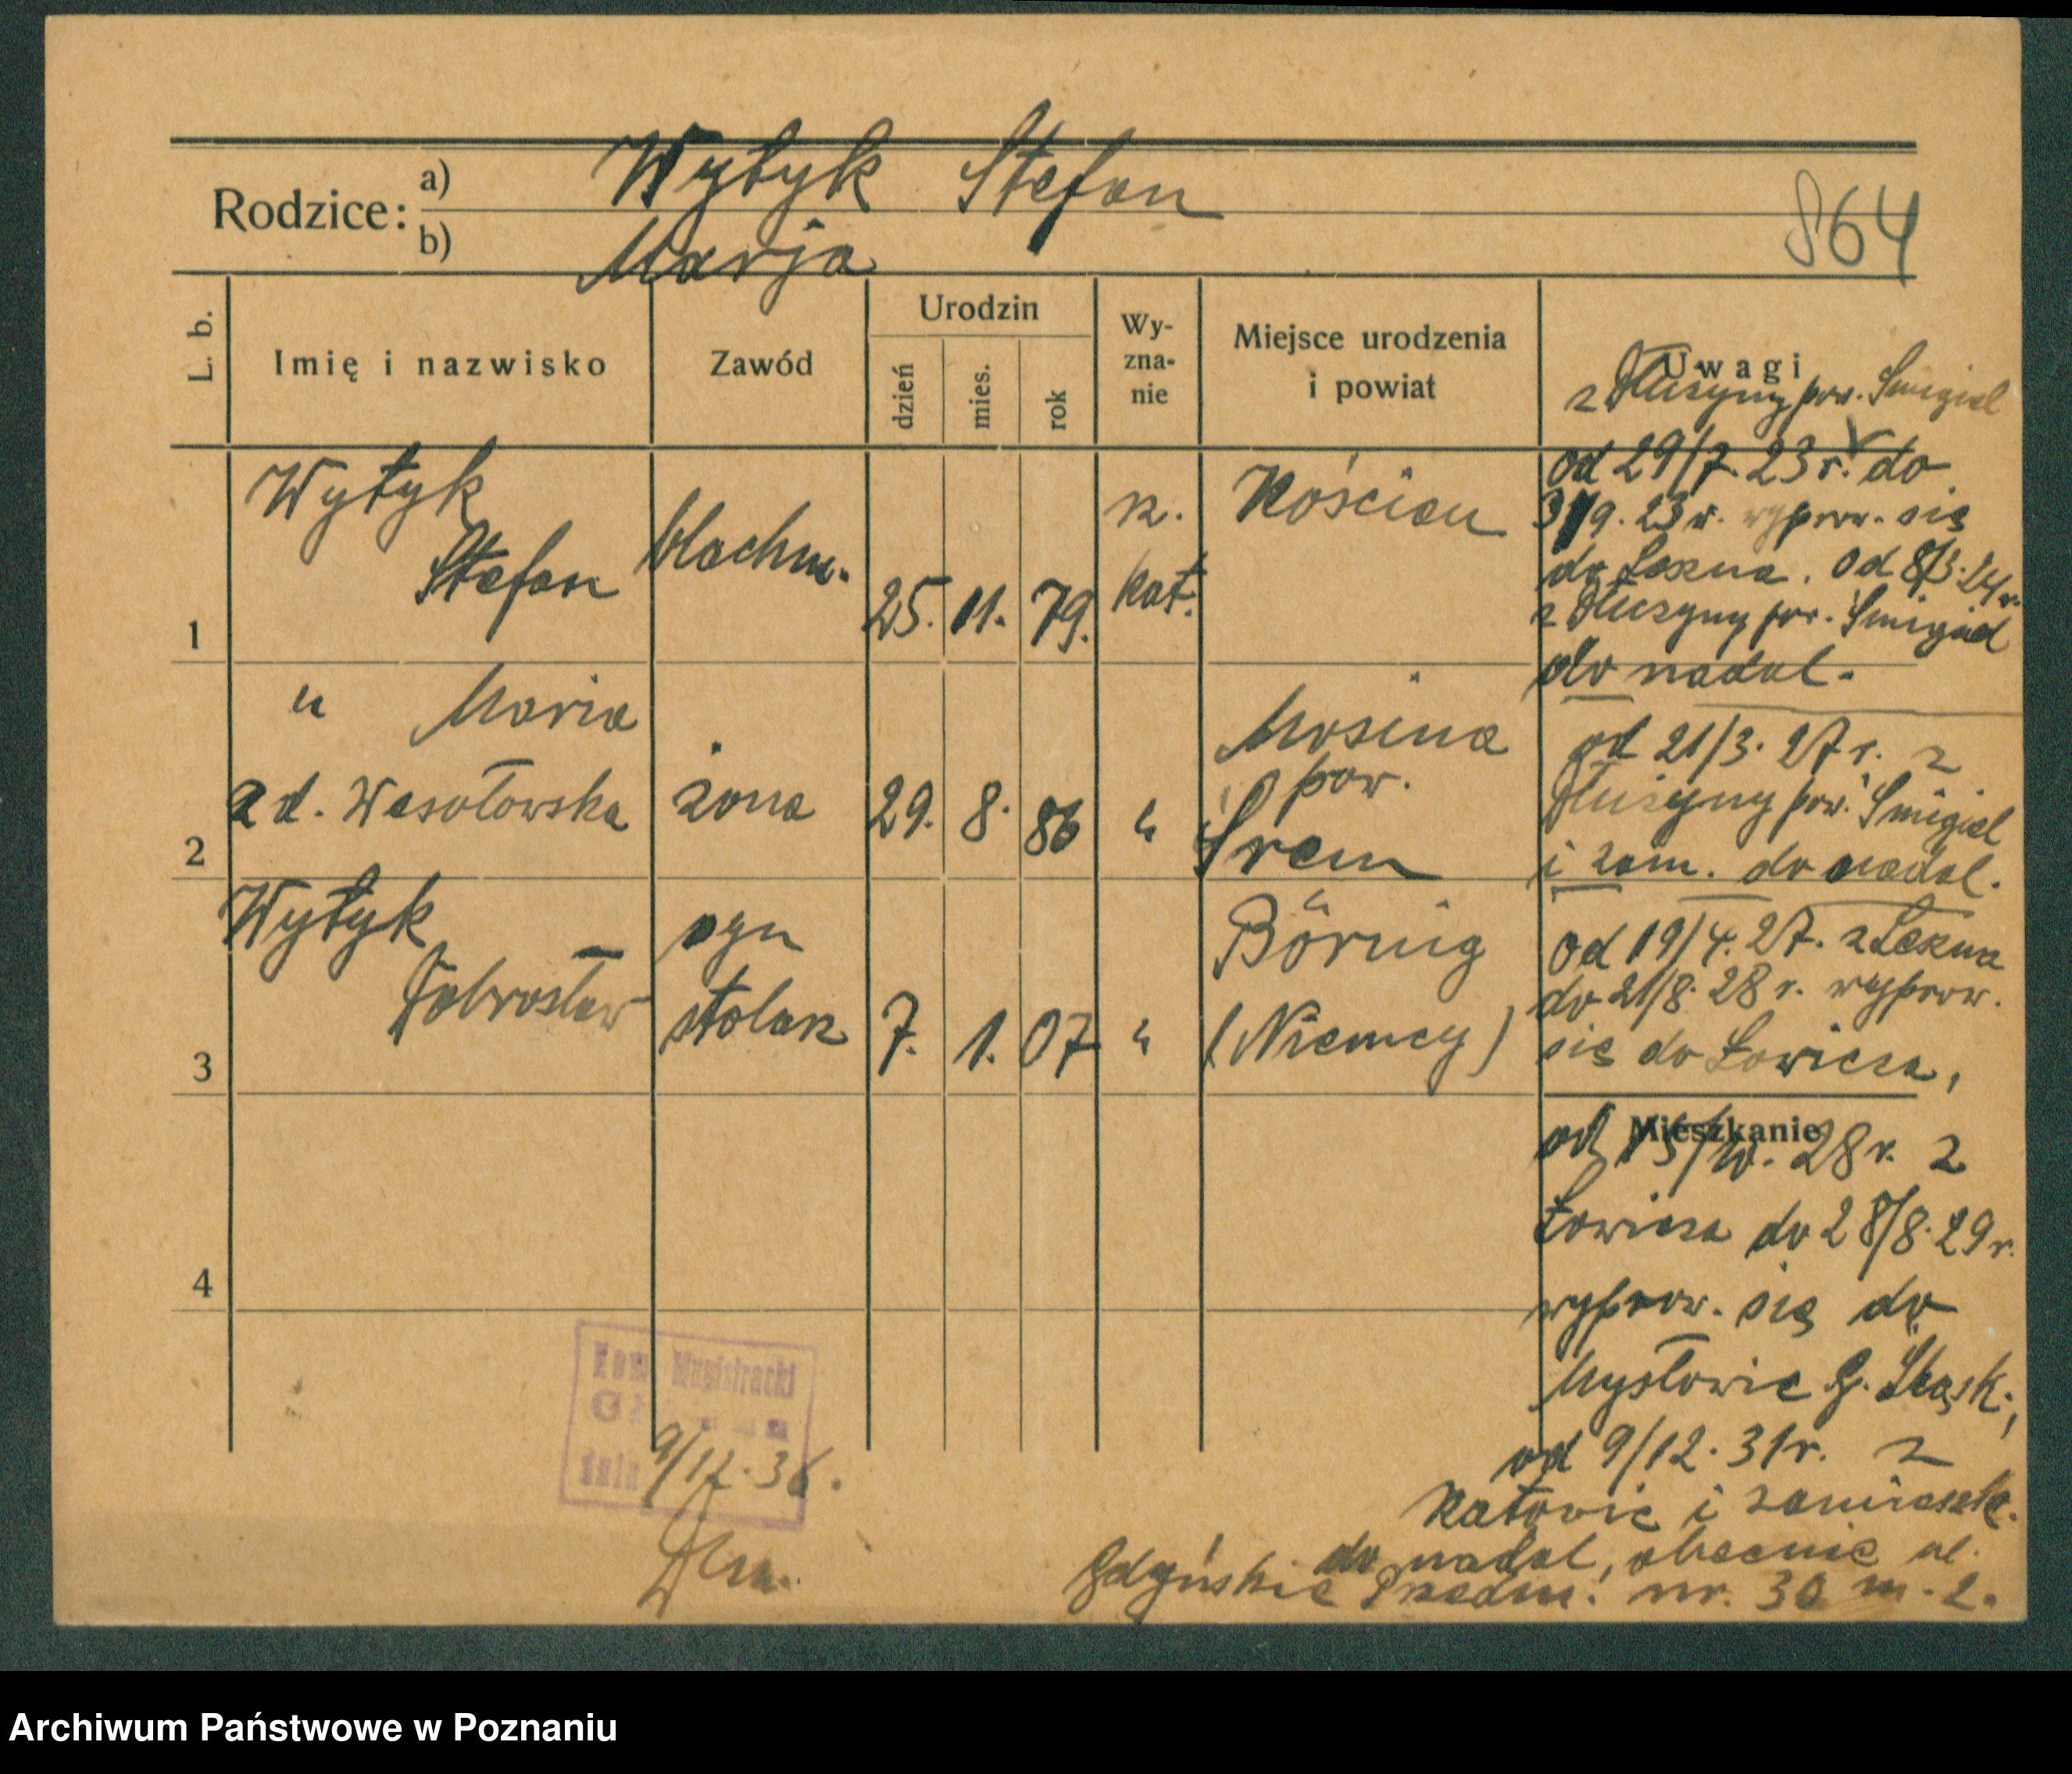 Rodzice:
a) Wytyk Stefan
b) Marja
864
L. b.
Imię i nazwisko
Zawód
Urodzin
dzień
mies.
rok
Wy-
zna-
nie
Miejsce urodzenia
i powiat
Uwagi
z Dłużyny pow. Śmigiel
1
Wytyk
Stefan
blachm.
25. 11. 79.
rz.
kat.
Kościan
od 29/7. 23 r. do
9. 23 r. wyprow. się
do Leszna. od 8/3. 24 r.
z Dłużyny pow. Śmigiel
do nadal.
2
" Maria
zd. Wesołowska
żona
29. 8. 86
"
Mosina
pow.
Śrem
od 21/3. 27 r. z
Dłużyny pow. Śmigiel
i zam. do nadal.
3
Wytyk
Dobrosław
syn
stolarz
7. 1. 07
"
Börnig
(Niemcy)
od 19/4. 27. z Leszna
do 21/8. 28 r. wyprow.
się do Łowicza,
Mieszkanie
od 28 r. z
Łowicza do 28/8. 29 r.
wyprow. się do
Mysłowic G. Śląsk.,
od 9/12. 31 r. z
Katowic i zamieszk.
do nadal, obecnie ul.
Gdyńskie Przedm. nr. 30 m. 2.
4
Kom Magistracki
dnia 9/12. 36.
Archiwum Państwowe w Poznaniu